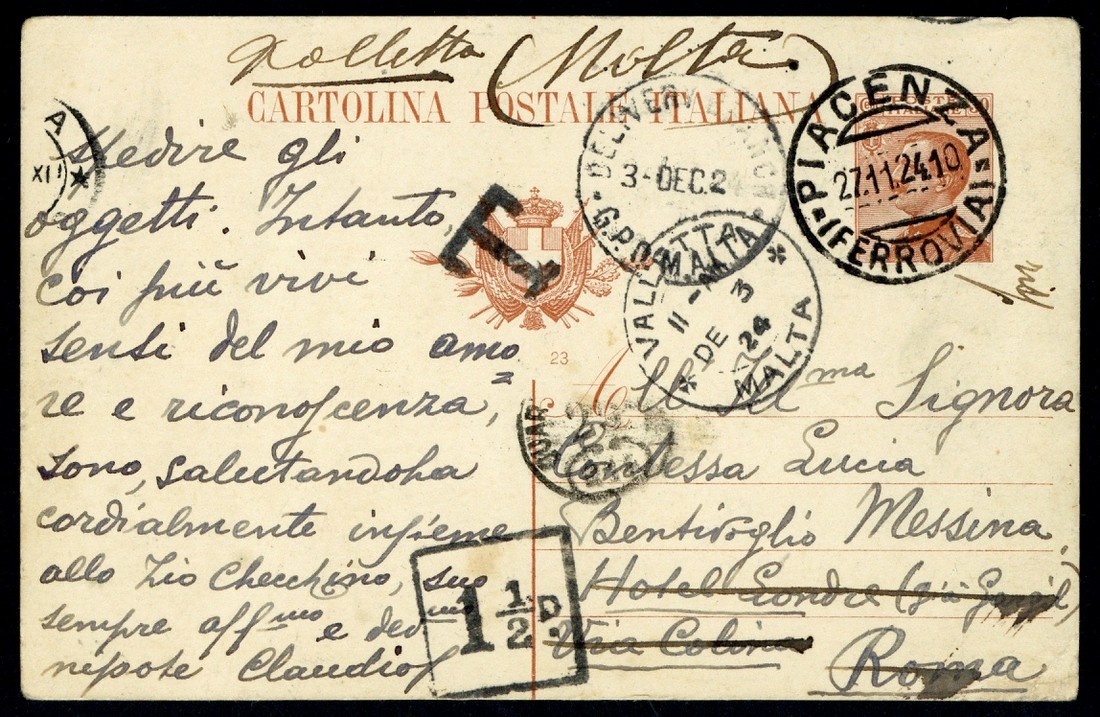 Valletta (Malta)
CARTOLINA POSTALE ITALIANA
PIACENZA
27.11.24.10
(FERROVIA)
DELIVERY
3-DEC.24
G.P.O. MALTA
VALLETTA
11-
DE 3
24
MALTA
T
A
XII
23
spedire gli
oggetti. Intanto,
coi più vivi
sensi del mio amo
re e riconoscenza,
sono, salutandola
cordialmente insieme
allo Zio Checchino, suo
sempre affmo e devmo
nipote Claudio
1 1/2 D.
All Illma Signora
Contessa Lucia
Bentivoglio Messina,
Hotel Londra (già
Via Colina
Roma